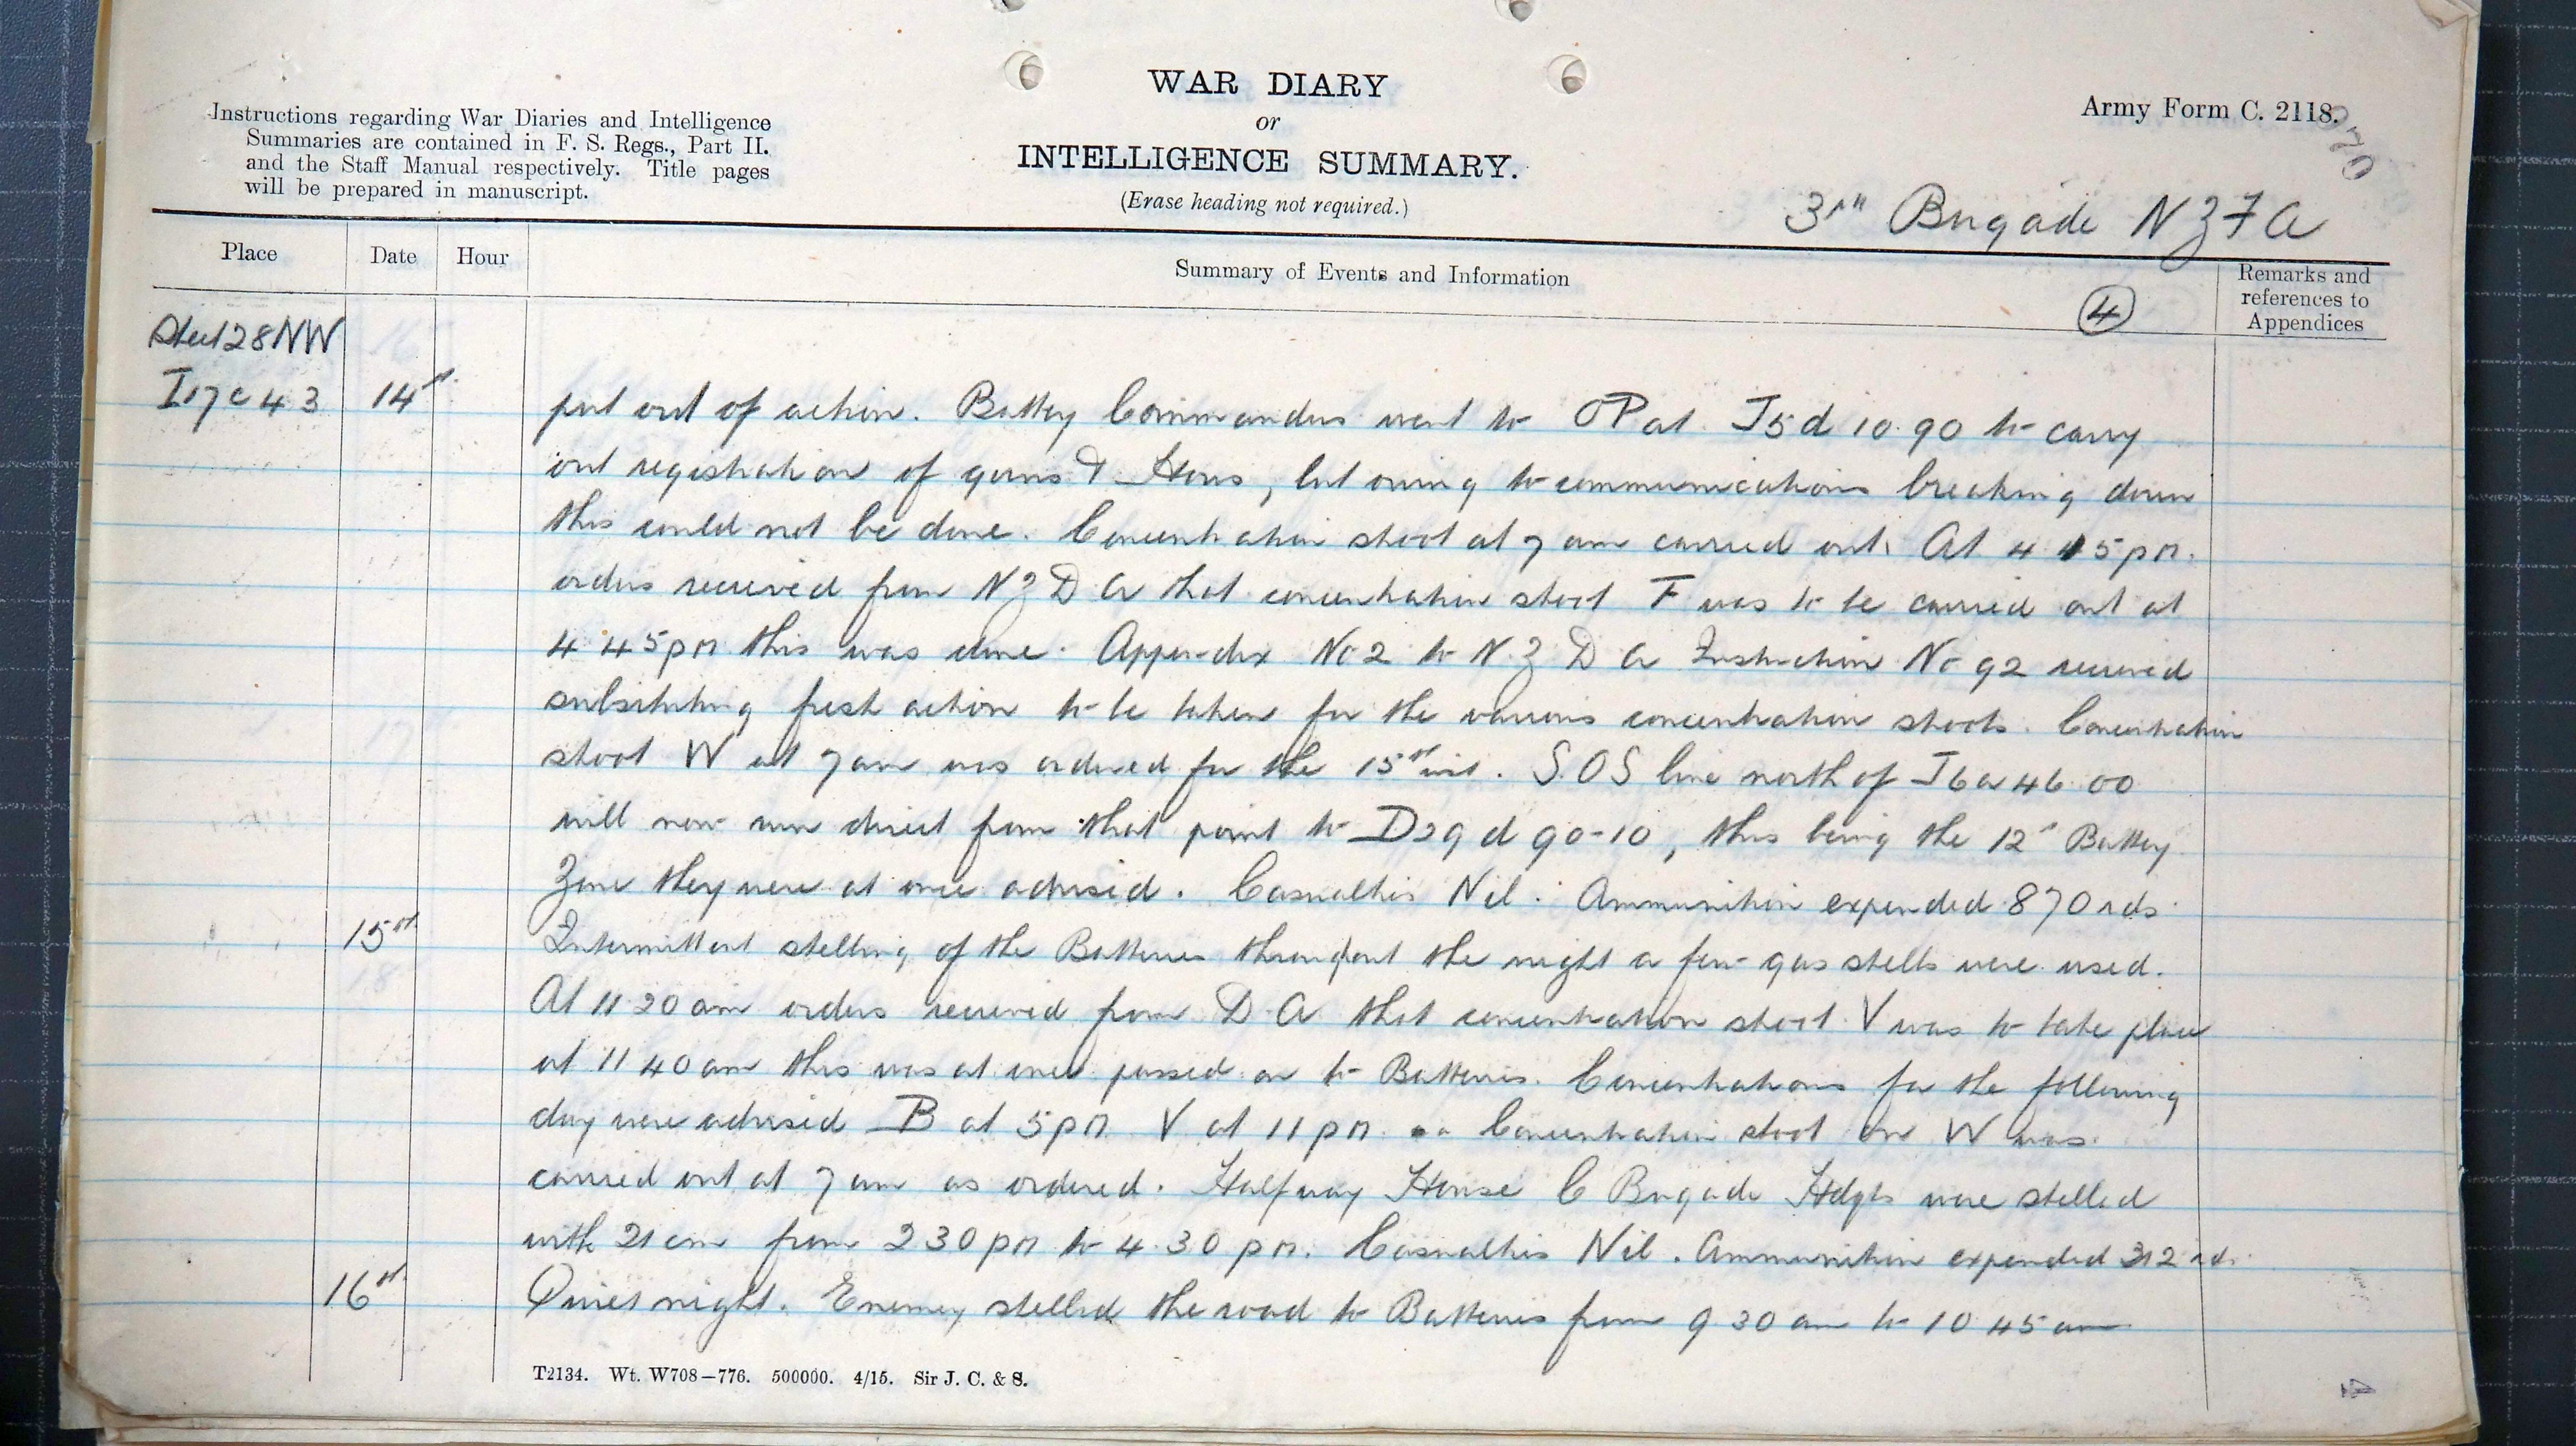 Instructions regarding War Diaries and Intelligence
Summaries are contained in F. S. Regs., Part II.
and the Staff Manual respectively. Title pages
will be prepared in manuscript.
WAR DIARY
or
INTELLIGENCE SUMMARY.
(Erase heading not required.)
Army Form C. 2118.
3rd Brigade NZFA
Place
Date
Hour
Summary of Events and Information
Remarks and
references to
Appendices
4
Sheet 28NW
I17c43
14th
put out of action. Battery Commanders went to OP at J5d 10.90 to carry
out registration of guns & Hows, but owing to communications breaking down
this could not be done. Concentration shoot at 7am carried out. At 4 15pm.
orders received from NZDA that concentration shoot F was to be carried out at
4 45pm this was done. Appendix No 2 to N.Z.D.A Instruction No 92 received
substituting fresh action to be taken for the various concentration shoots. Concentration
shoot W at 7am was ordered for the 15th inst. S.O.S line north of J6a46.00
will now run direct from that point to D29d90-10, this being the 12th Battery
Zone they were at once advised. Casualties Nil. Ammunition expended 870rds.
15th
Intermittent shelling of the Batteries throughout the night a few gas shells were used.
At 11 20am orders received from D.A that concentration shoot V was to take place
at 11 40am this was at once passed on to Batteries. Concentrations for the following
day were advised B at 5pm V at 11pm Concentration shoot on W was
carried out at 7am as ordered. Halfway House C Brigade Hdqts were shelled
with 21cm from 2 30pm to 4.30 pm. Casualties Nil. Ammunition expended 312 rds.
16th
Quiet night. Enemy shelled the road to Batteries from 9 30am to 10 45am
T2134. Wt. W708—776. 500000. 4/15. Sir J. C. & S.
4